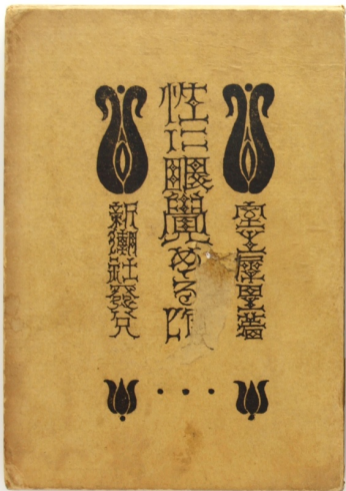 室生犀星著
性に眼覺める頃
新潮社發兌